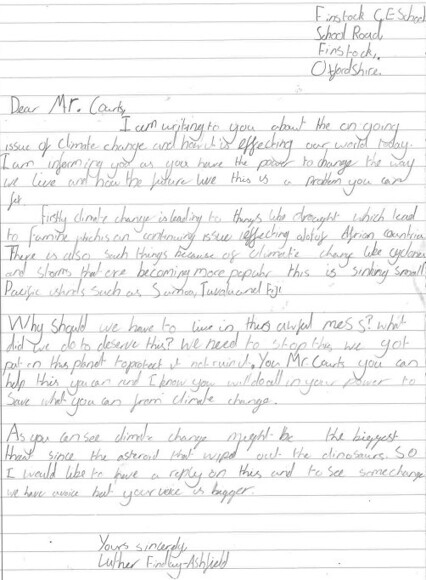 Finstock C.E School
School Road,
Finstock,
Oxfordshire.
Dear Mr. Courts,
I am writing to you about the on going
issue of climate change and how it is effecting our world today.
I am informing you as you have the power to change the way
we live and how the future live this is a problem you can
fix
Firstly climate change is leading to things like drought which lead
to famine which is an continuing issue effecting alot of African countries
There is also such things because of climate change like cyclones
and storms that are becoming more popular this is sinking small
Pacific islands such as Samoa, Tuvalu and Fiji
Why should we have to live in this awful mess? What
did we do to deserve this? We need to stop this we got
put on this planet to protect it not ruin it. You Mr Courts you can
help this you can and I know you will do all in your power to
save what you can from climate change.
As you can see climate change might be the biggest
threat since the asteroid that wiped out the dinosaurs. So
I would like to have a reply on this and to see some change
we have a voice but your voice is bigger.
Yours sincerely,
Luther Findlay-Ashfield